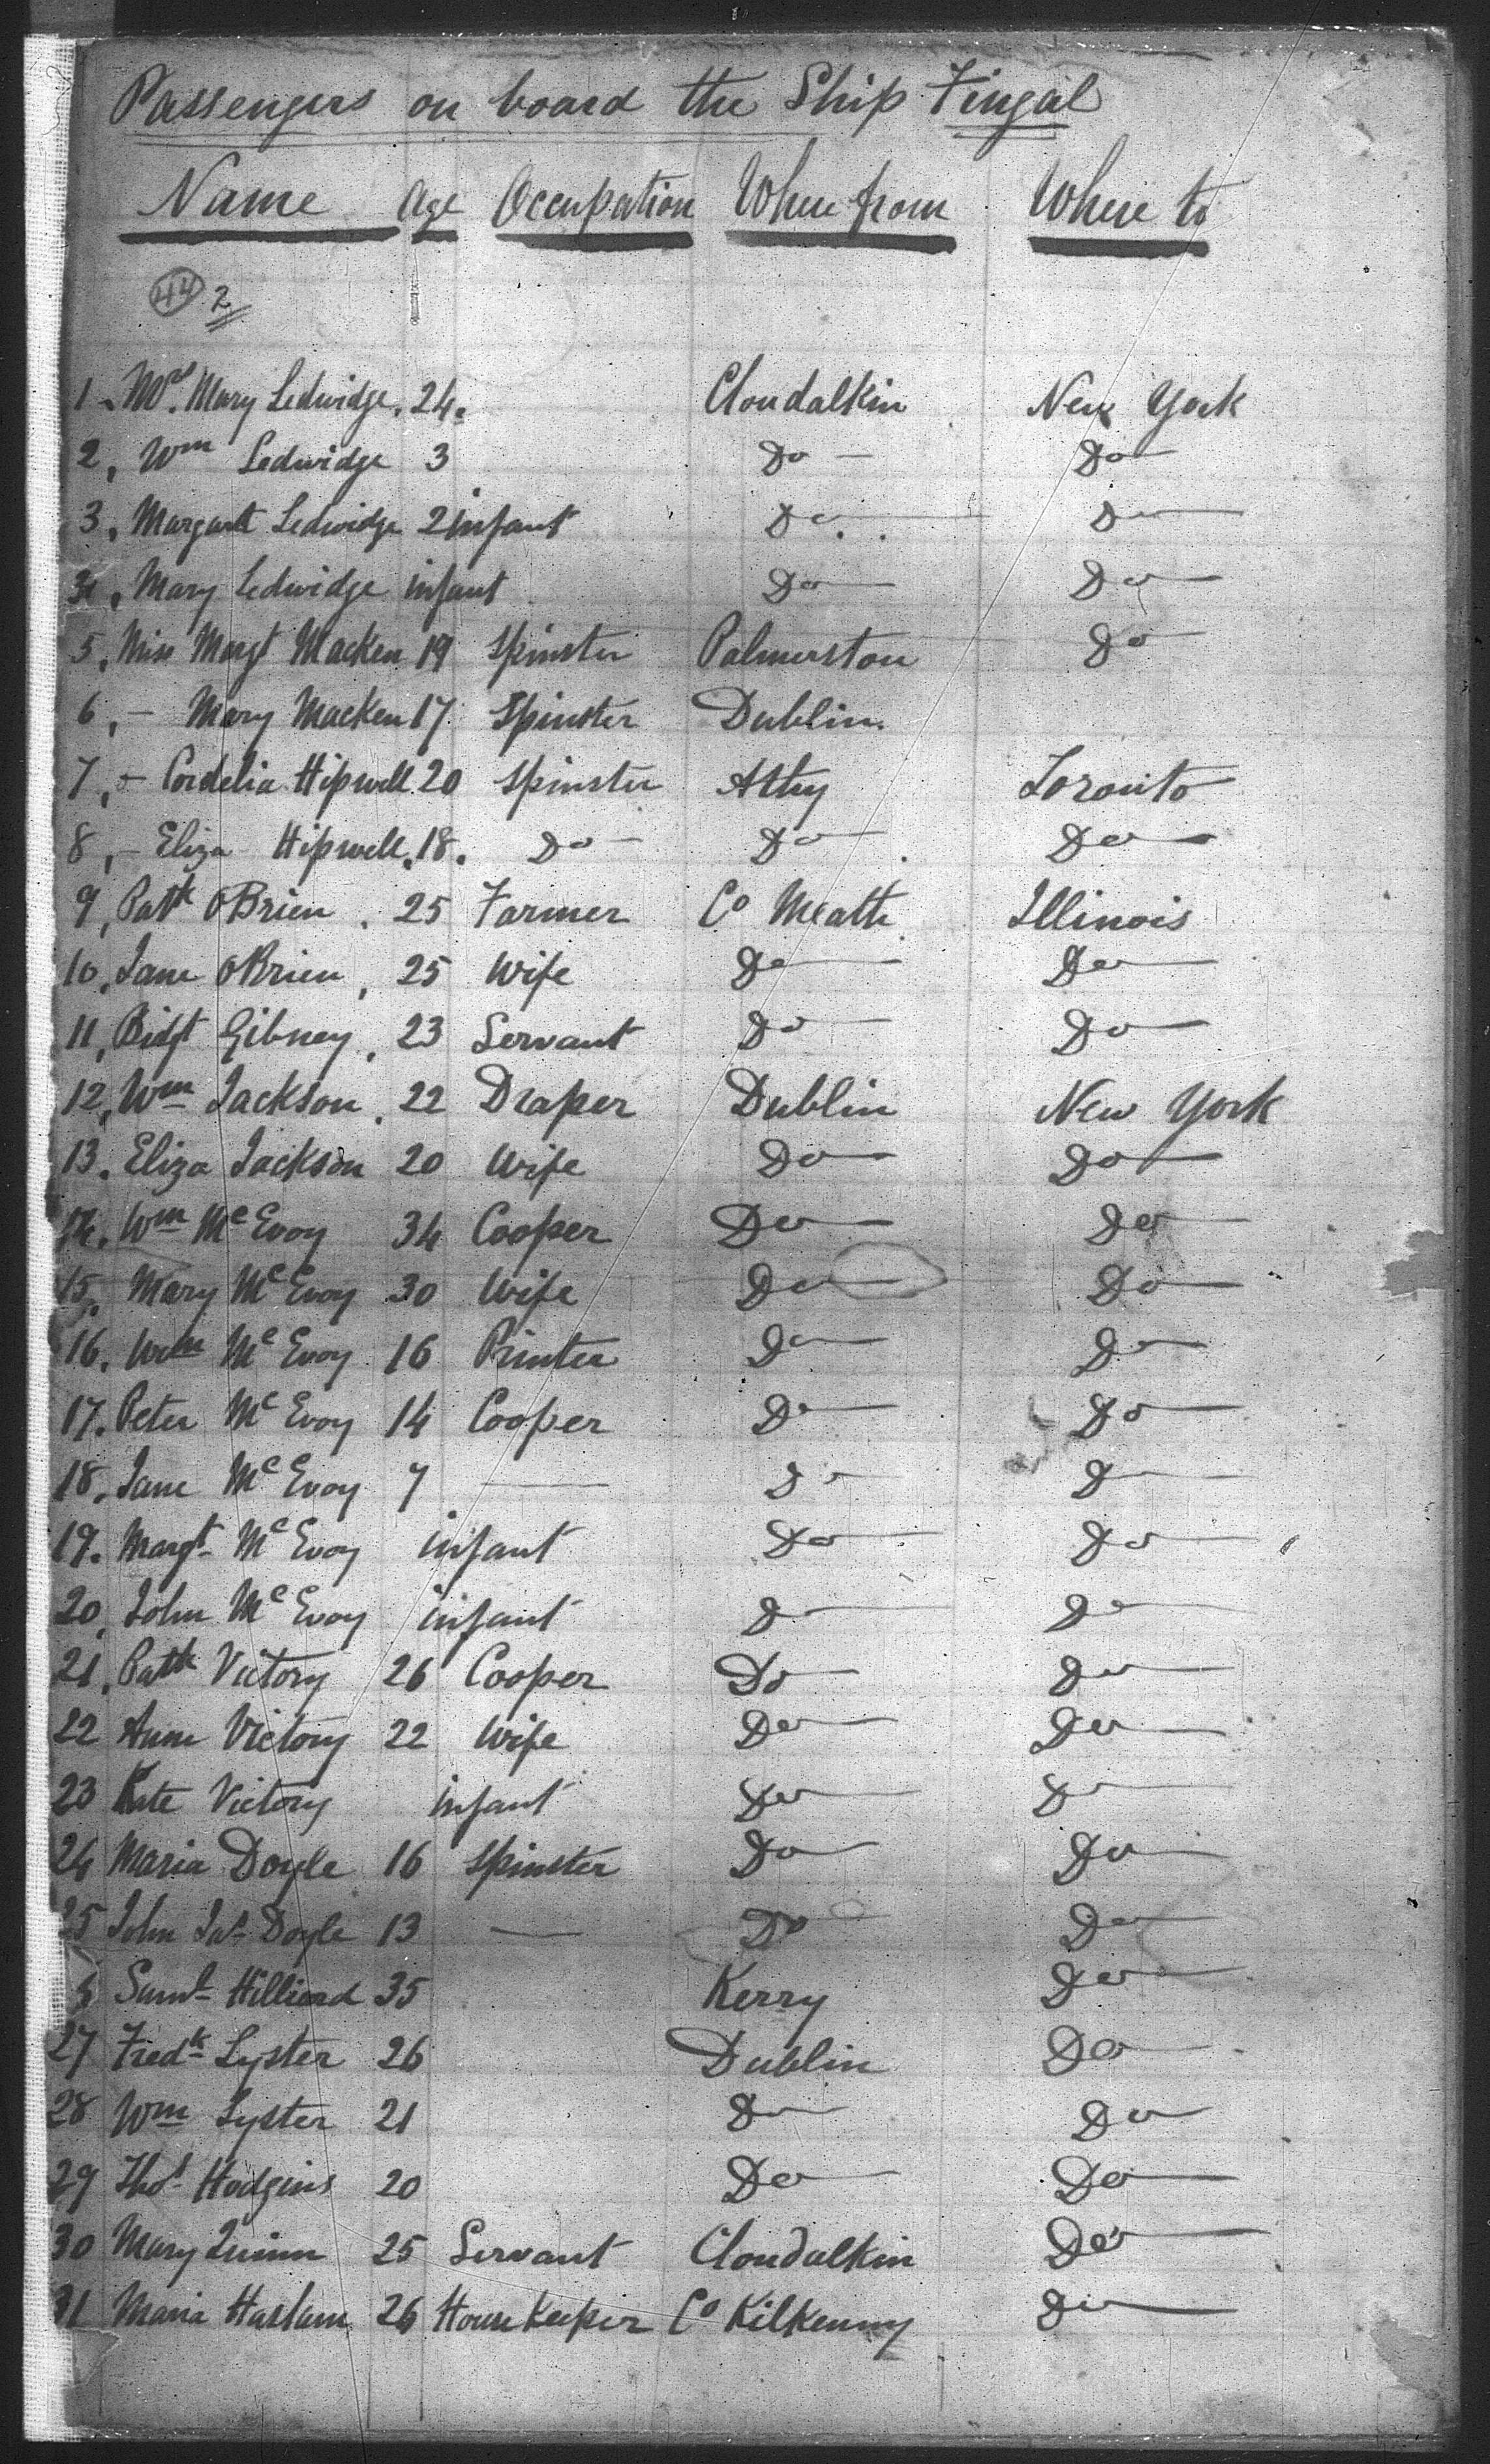 Passengers on board the Ship Fingal
Name Age Occupation Where from Where to
44 2
1. Mrs. Mary Ledwidge. 24. Clondalkin New York
2, Wm Ledwidge 3 Do Do
3, Margaret Ledwidge 2 infant Do Do
4, Mary Ledwidge infant Do Do
5, Miss Margt Macken 19 Spinster Palmerston Do
6, - Mary Macken 17 Spinster Dublin
7, - Cordelia Hipwell 20 Spinster Athy Toronto
8, - Eliza Hipwell. 18. Do Do Do
9, Patk OBrien, 25 Farmer Co Meath Illinois
10, Jane OBrien, 25 Wife Do Do
11, Bidgt Gibney, 23 Servant Do Do
12, Wm Jackson, 22 Draper Dublin New York
13. Eliza Jackson 20 Wife Do Do
14. Wm McEvoy 34 Cooper Do Do
15. Mary McEvoy 30 Wife Do Do
16. Wm McEvoy 16 Printer Do Do
17. Peter McEvoy 14 Cooper Do Do
18. Jane McEvoy 7 — Do Do
19. Margt McEvoy infant Do Do
20, John McEvoy infant Do Do
21, Patk Victory 26 Cooper Do Do
22 Anne Victory 22 Wife Do Do
23 Kate Victory infant Do Do
24 Maria Doyle 16 Spinster Do Do
25 John Jas Doyle 13 — Do Do
6 Saml Hilliard 35 Kerry Do
27 Fredk Lyster 26 Dublin Do
28 Wm Lyster 21 Do Do
29 Thos Hodgins 20 Do Do
30 Mary Quinn 25 Servant Clondalkin Do
31 Maria Haslam 26 House Keeper Co Kilkenny Do